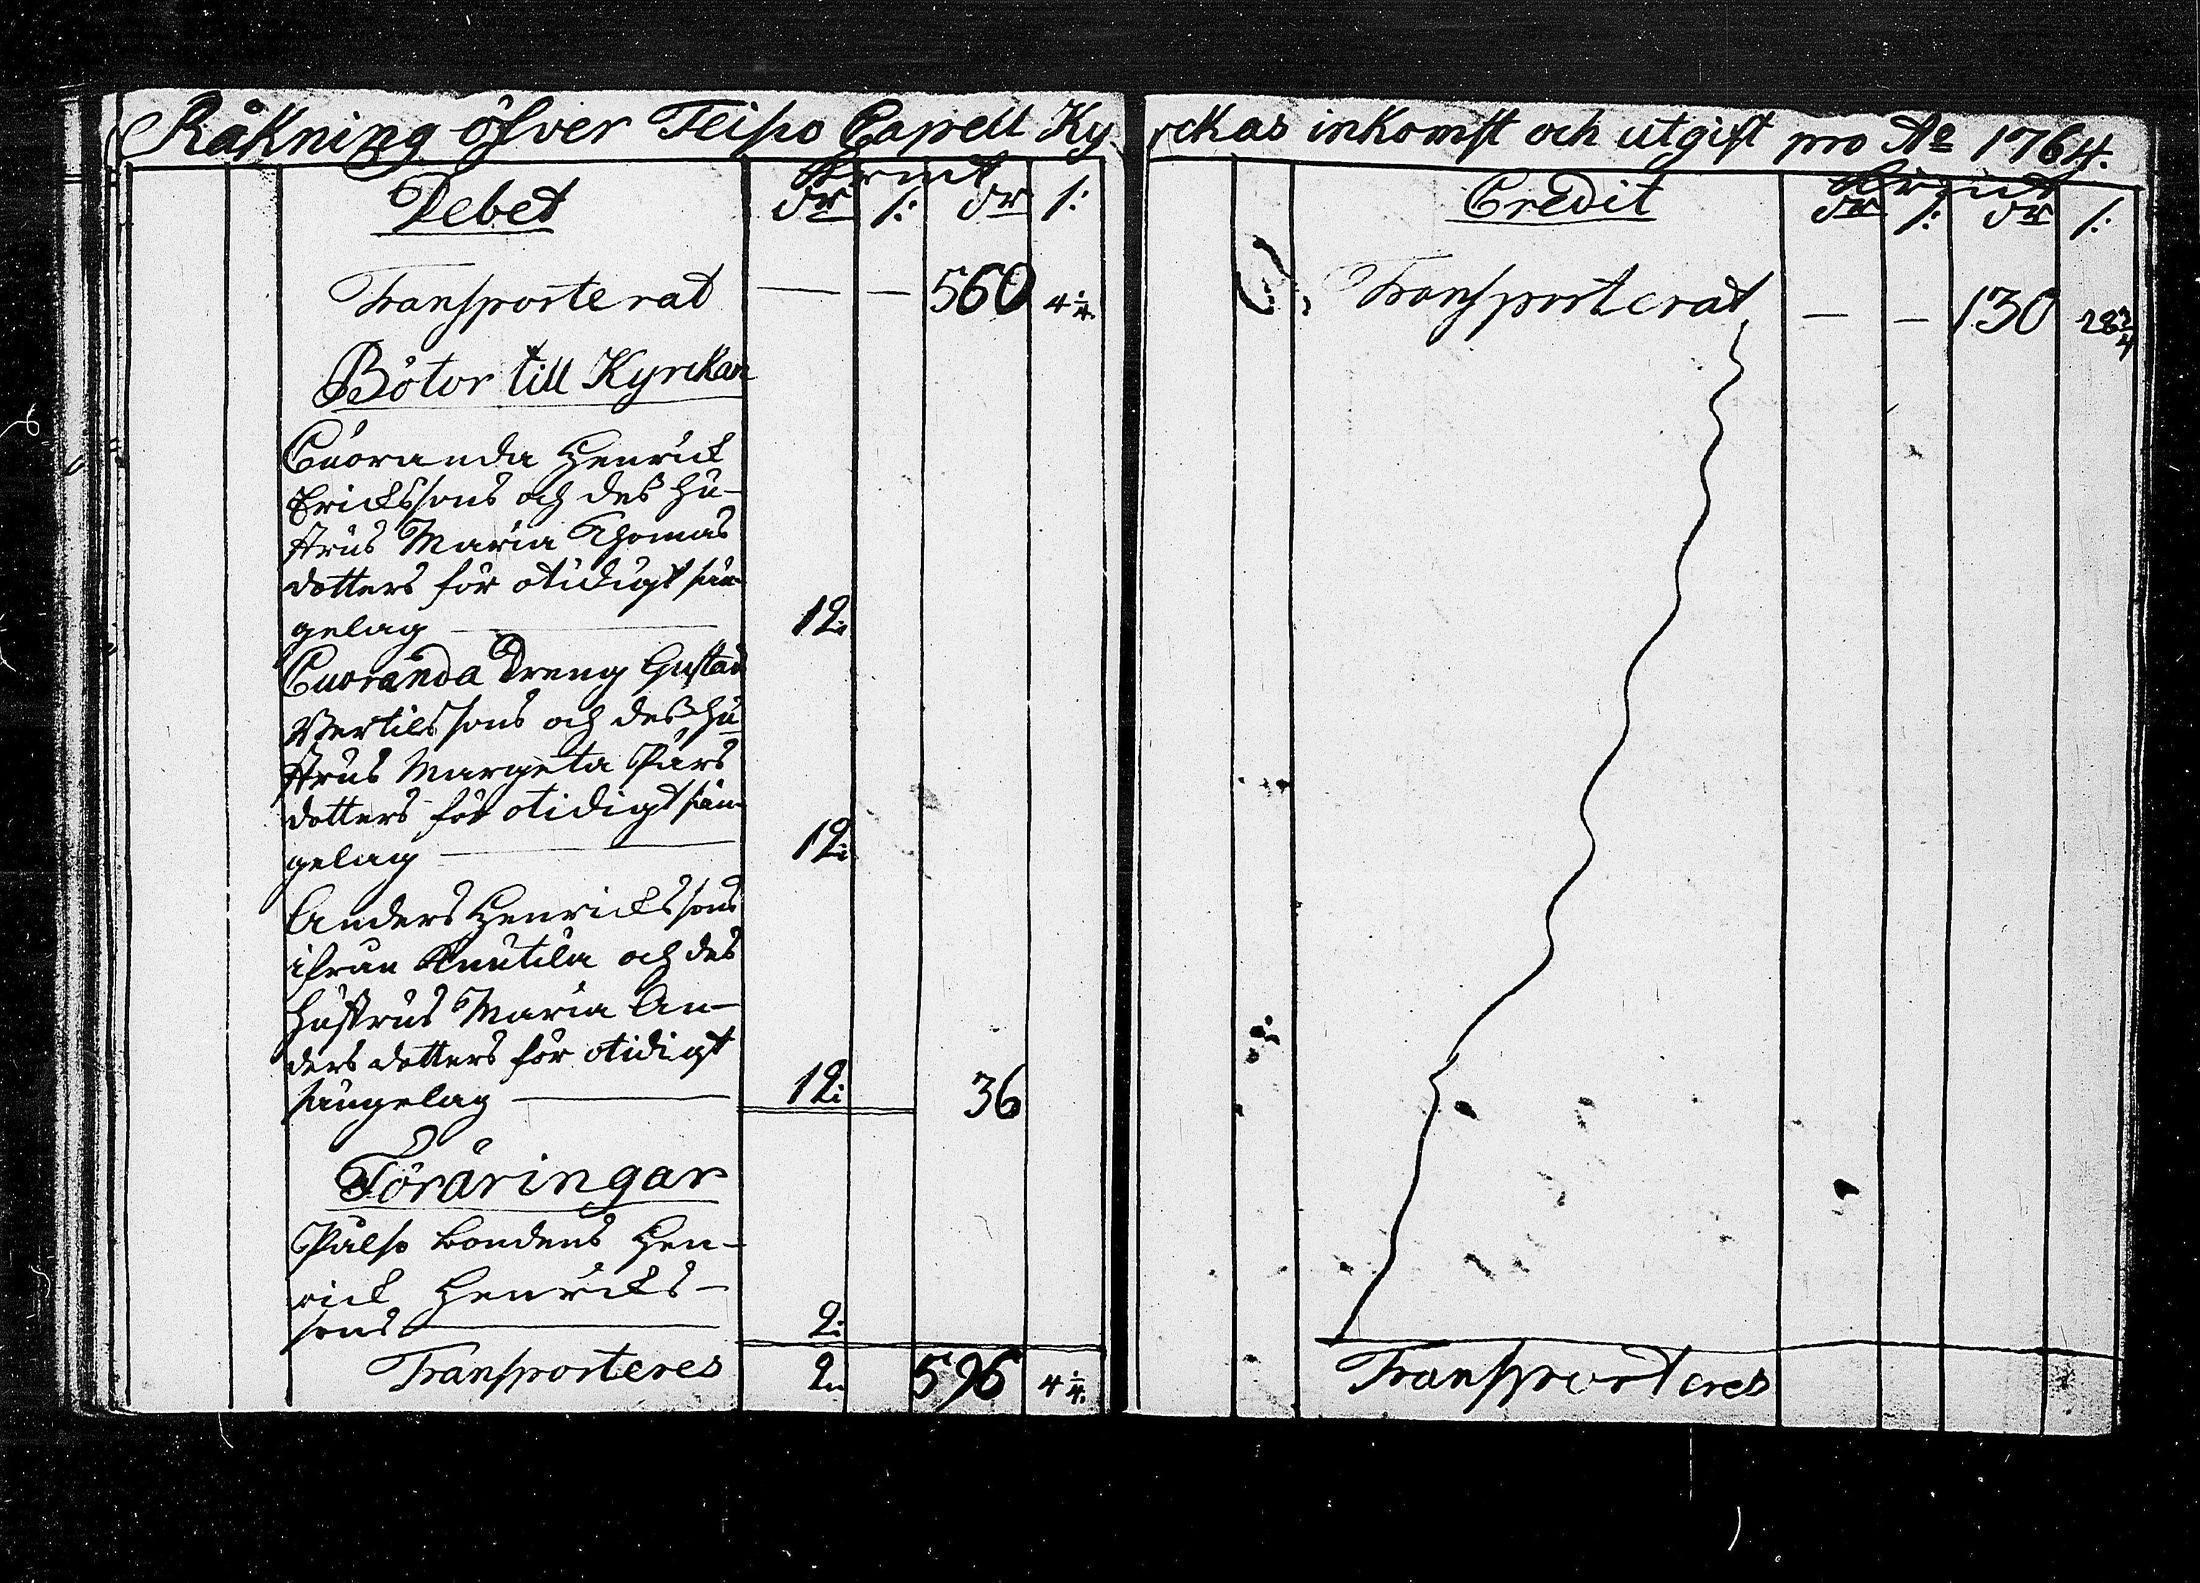 Räkning öfver Teisko Capell Kyrckas inkomst och utgift pro Aō 1764.
Debet
dr /: dr /:
Transporterat — — 560 4 1/4.
Böter till Kyrckan
Cuoranda Henrick
Erickssons och des hu-
strus Maria Thomas
dotters för otidigt sän-
gelag — 12:
Cuoranda Dreng Gustav
Bertilssons och des hu
strus Margeta Pärs
dotters för otidigt sän-
gelag — 12:
Anders Henrickssons
ifrån Knutila och des
hustrus Maria An-
ders dotters för otidigt
sängelag — 12: 36
Föräringar
Pålso bondens Hen-
rick Henricks-
sons — 2:
Transporteres 2 596 4 1/4.
Credit
dr /: dr /:
Transporterat — — 130 28 3/4
Transporteres